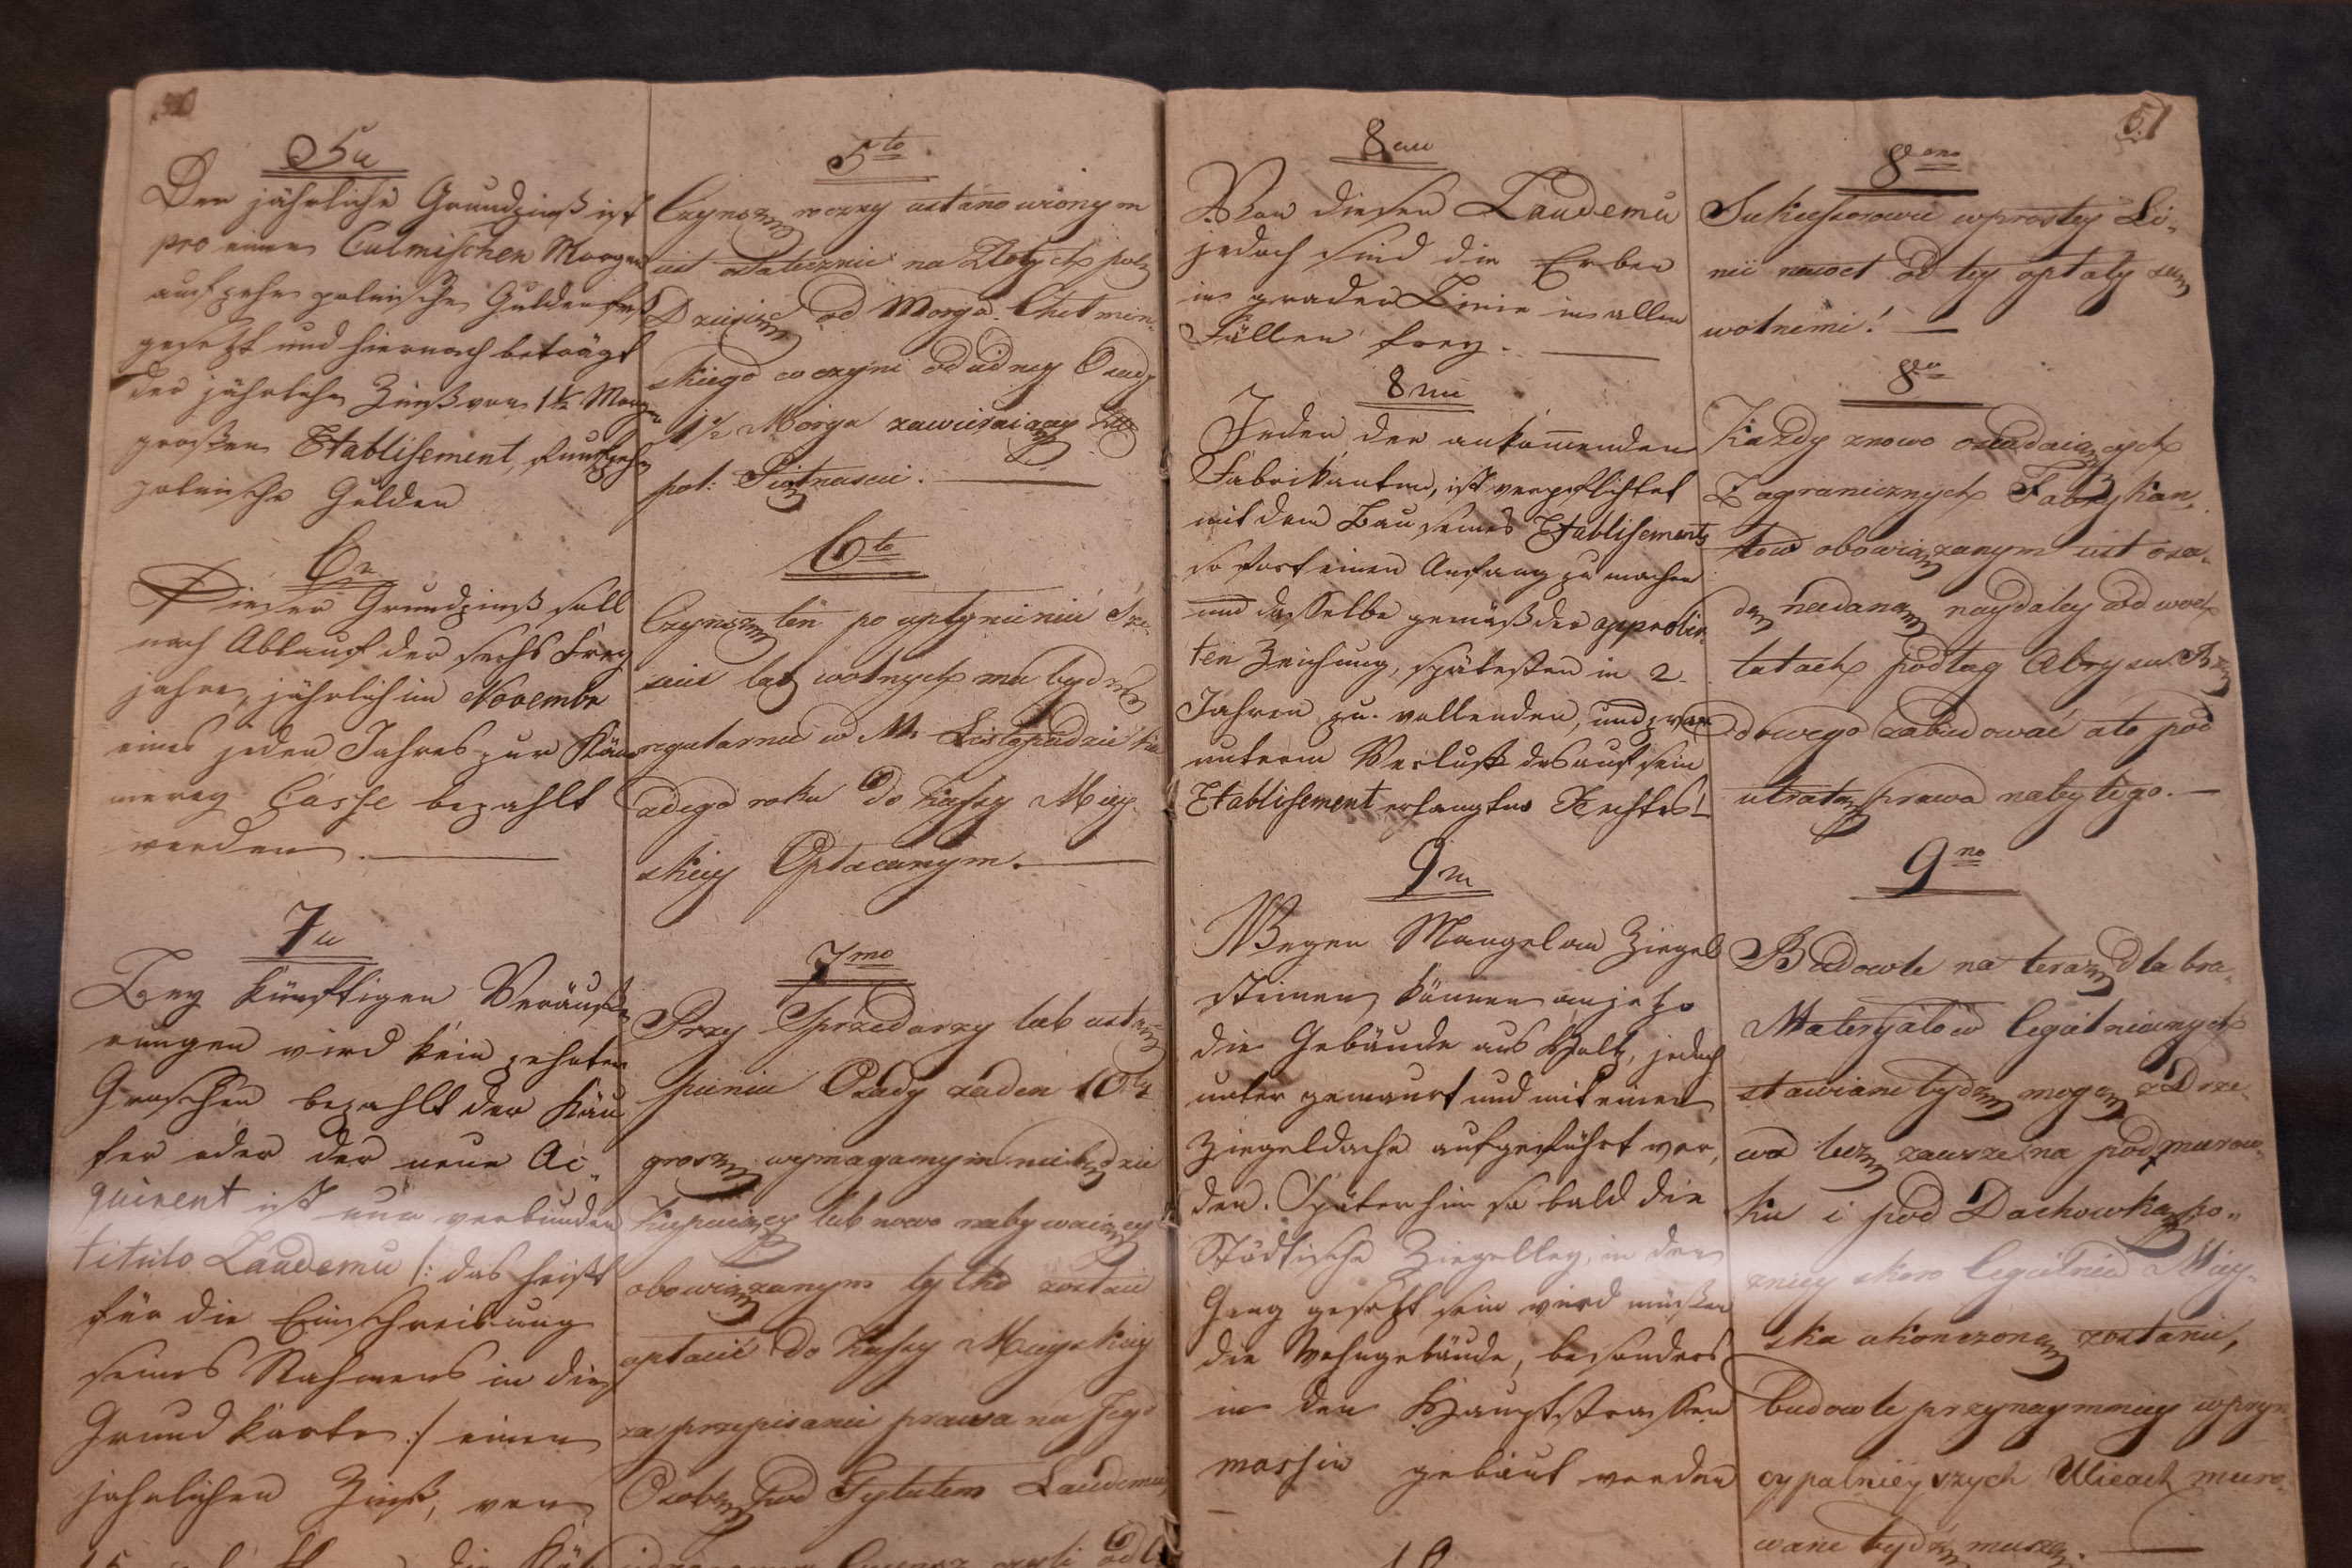 5tn
Der jährliche Grundzinß ist
pro einen Culmischen Morgen
auf zehn polnische Gulden fest
gesetzt und hiernach beträgt
der jährliche Zinß von 1½ Morgen
großen Etablisement, funfzehn
polnische Gulden
6tn
Dieser Grundzinß soll
nach Ablauf der sechs Frey
jahre, jährlich im November
eines jeden Jahres zur Käm
merey Casse bezahlt
werden.
7tn
Bey künftigen Veräuße
rungen wird kein zehnter
Groschen bezahlt der Käu
fer oder der neue Ac
quirent ist nur verbunden
titulo Laudemii /: das heißt
für die Einschreibung
seines Nahmens in die
Grund Karte :/ einen
jährlichen Zinß, von
5to
Czynsz roczny ustanowionym
iest ostatecznie na Złotych pol
Dziesięć od Morga Chełmin
skiego co czyni od iedney Osady
1½ Morga zawieraiący Złł
pol: Piętnascie.
6to
Czynsz ten po upłynieniu Sze
sciu lat wolnych ma bydź
regularnie w M. Listopadzie każ
dego roku do Kassy Miey
skiey Opłacanym.
7mo
Przy Sprzedarzy lub ustą
pieniu Osady żaden 10ty
grosz wymaganym nie będzie
Kupuiący lub nowo nabywaiący
obowiązanym tylko zostaie
opłacić do Kassy Mieyskiey
za przepisanie prawa na Jego
Osobę pod Tytułem Laudemii
8mo
Von diesen Laudemii
jedoch sind die Erben
in grader Linie in allen
Fällen frey.
8mi
Jeder der ankommenden
Fabrikanten, ist verpflichtet
mit dem Bau seines Etablisements
so fort einen Anfang zu machen
und dasselbe gemäß der approbir
ten Zeichung, spätestens in 2
Jahren zu vollenden, und zwar
unterm Verlust des auf sein
Etablisement erlangten Rechtes!
9m
Wegen Mangel an Ziegel
steinen können anjetzo
die Gebäude aus Holtz, jedoch
unter gemaurt und mit einem
Ziegeldache aufgeführt wer,
den. Späterhin so bald die
Städtische Ziegelley, in den
Gang gesetzt sein wird müßen
die Wohngebäude, besonders
in den Hauptstraßen
massiv gebaut werden
5.
8vo
Sukcessorowie w prostey Li-
nii nawet od tey opłaty są
wolnemi!
8vo
Każdy znowo osiadaiących
Zagranicznych Fabrykan,
tow obowiązanym iest osa-
dę nadaną naydaley w dwoch
latach podług Abrysu Rzą
dowego zabudować a to pod
utratą prawa nabytego.
9no
Budowle na teraz dla bra-
Materyałów Cegielnianych
stawiane bydź mogą z Drze-
wa lecz zawsze na podmurow-
ku i pod Dachowką po-
zniey skoro Cegielnia Miey-
ska ukonczoną zostanie,
budowle przynaymniey w pryn
cypalnieyszych Ulicach muro-
wane bydź muszą.
10